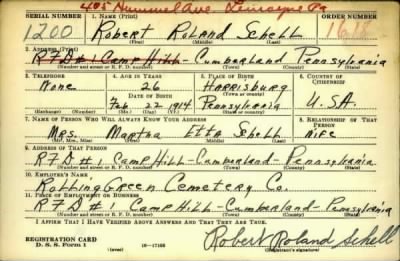 405 Hummel Ave. Lemoyne Pa
SERIAL NUMBER 1. NAME (Print) ORDER NUMBER
1200 Robert Roland Schell 1618
(First) (Middle) (Last)
2. ADDRESS (Print)
RFD #1 Camp Hill - Cumberland Pennsylvania
(Number and street or R. F. D. number) (Town) (County) (State)
3. TELEPHONE 4. AGE IN YEARS 5. PLACE OF BIRTH 6. COUNTRY OF CITIZENSHIP
None 26 Harrisburg
DATE OF BIRTH (Town or county)
Feb 22 1914 Pennsylvania U.S.A.
(Exchange) (Number) (Mo.) (Day) (Yr.) (State or country)
7. NAME OF PERSON WHO WILL ALWAYS KNOW YOUR ADDRESS 8. RELATIONSHIP OF THAT PERSON
Mrs. Martha Etta Schell Wife
(Mr., Mrs., Miss) (First) (Middle) (Last)
9. ADDRESS OF THAT PERSON
RFD #1 Camp Hill - Cumberland - Pennsylvania
(Number and street or R. F. D. number) (Town) (County) (State)
10. EMPLOYER'S NAME
Rolling Green Cemetery Co.
11. PLACE OF EMPLOYMENT OR BUSINESS
RFD #1 Camp Hill - Cumberland - Pennsylvania
(Number and street or R. F. D. number) (Town) (County) (State)
I AFFIRM THAT I HAVE VERIFIED ABOVE ANSWERS AND THAT THEY ARE TRUE.
REGISTRATION CARD
D. S. S. Form 1 (over) 16-17105 Robert Roland Schell
(Registrant's signature)